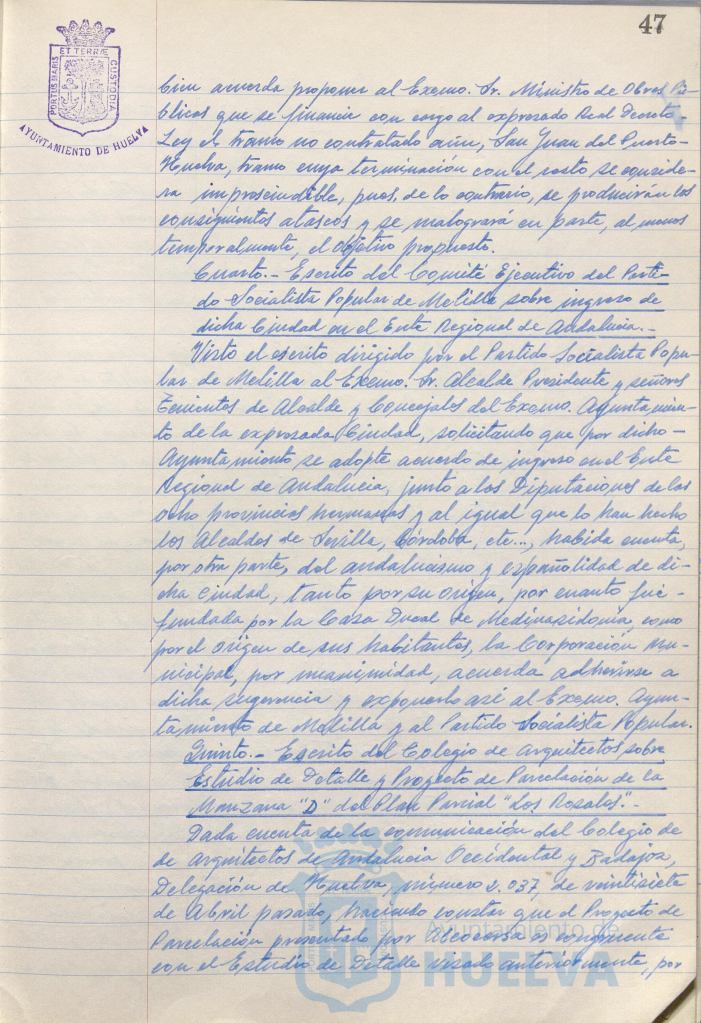 47
PORTUS MARIS ET TERRÆ CUSTODIA
AYUNTAMIENTO DE HUELVA
bien acuerda proponer al Excmo. Sr. Ministro de Obras Pú-
blicas que se financie con cargo al expresado Real Decreto-
Ley el tramo no contratado aún, San Juan del Puerto-
Huelva, tramo cuya terminación con el resto se conside-
ra imprescindible, pues, de lo contrario, se producirán los
consiguientes atascos y se malogrará en parte, al menos
temporalmente, el objetivo propuesto.
Cuarto.- Escrito del Comité Ejecutivo del Parti-
do Socialista Popular de Melilla sobre ingreso de
dicha Ciudad en el Ente Regional de Andalucía.-
Visto el escrito dirigido por el Partido Socialista Popu-
lar de Melilla al Excmo. Sr. Alcalde Presidente y señores
Tenientes de Alcalde y Concejales del Excmo. Ayuntamien-
to de la expresada Ciudad, solicitando que por dicho-
Ayuntamiento se adopte acuerdo de ingreso en el Ente
Regional de Andalucía, junto a las Diputaciones de las
ocho provincias hermanas y al igual que lo han hecho
los Alcaldes de Sevilla, Córdoba, etc..., habida cuenta,
por otra parte, del andalucismo y españolidad de di-
cha ciudad, tanto por su origen, por cuanto fué-
fundada por la Casa Ducal de Medinasidonia, como
por el origen de sus habitantes, la Corporación Mu-
nicipal, por unanimidad, acuerda adherirse a
dicha sugerencia y exponerlo así al Excmo. Ayun-
tamiento de Melilla y al Partido Socialista Popular.
Quinto.- Escrito del Colegio de Arquitectos sobre
Estudio de Detalle y Proyecto de Parcelación de la
Manzana "D" del Plan Parcial "Los Rosales".-
Dada cuenta de la comunicación del Colegio de
de Arquitectos de Andalucía Occidental y Badajoz,
Delegación de Huelva, número 2.037, de veintisiete
de Abril pasado, haciendo constar que el Proyecto de
Parcelación presentado por Alcocersa es congruente
con el Estudio de Detalle visado anteriormente, por
Ayuntamiento de
HUELVA